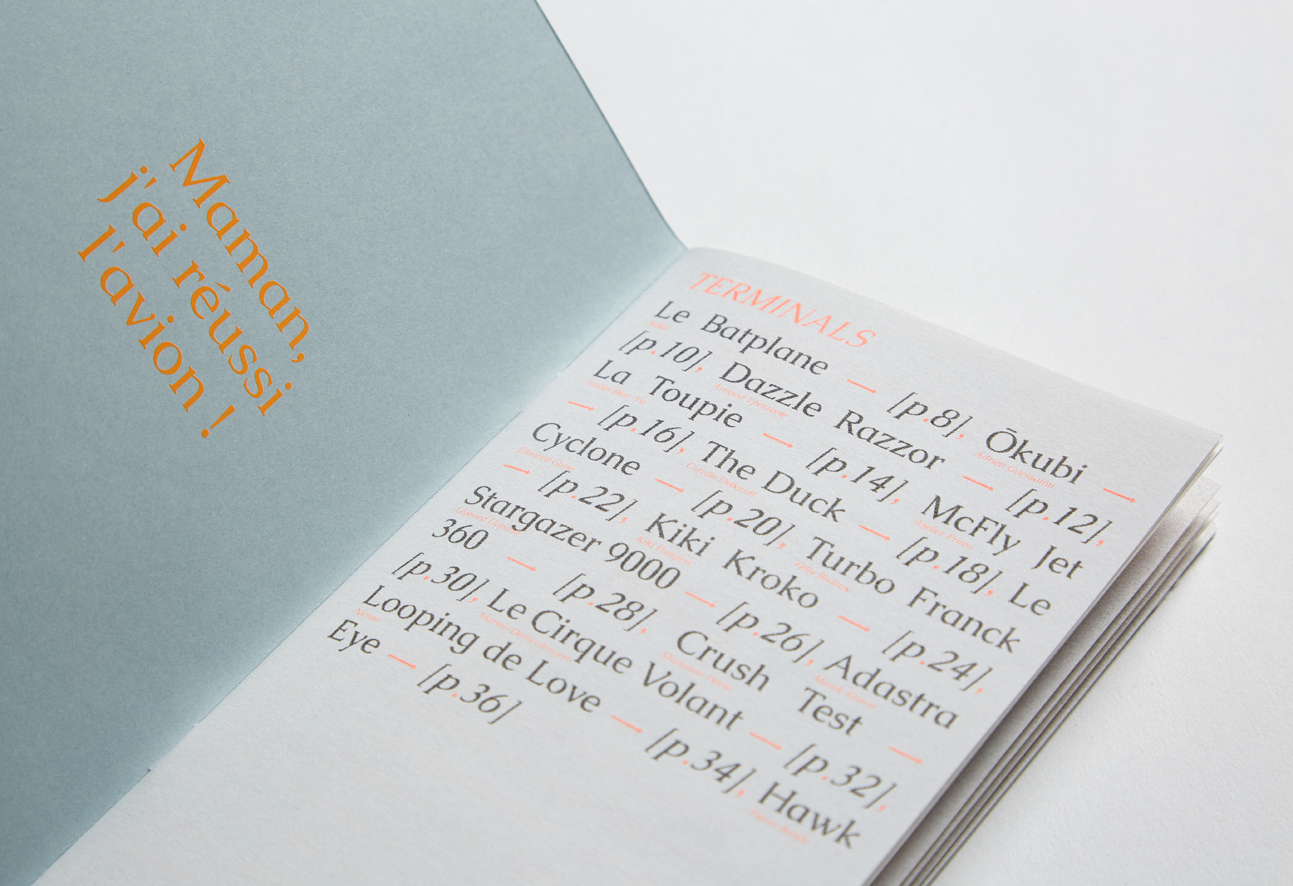 Maman,
j'ai réussi
l'avion !
TERMINALS
Le Batplane → [p.8], Ōkubi →
[p.10], Dazzle Razzor → [p.12],
La Toupie → [p.14], McFly Jet
→ [p.16], The Duck → [p.18], Le
Cyclone → [p.20], Turbo Franck
→ [p.22], Kiki Kroko → [p.24],
Stargazer 9000 → [p.26], Adastra
360 → [p.28], Crush Test →
[p.30], Le Cirque Volant → [p.32],
Looping de Love → [p.34], Hawk
Eye → [p.36]